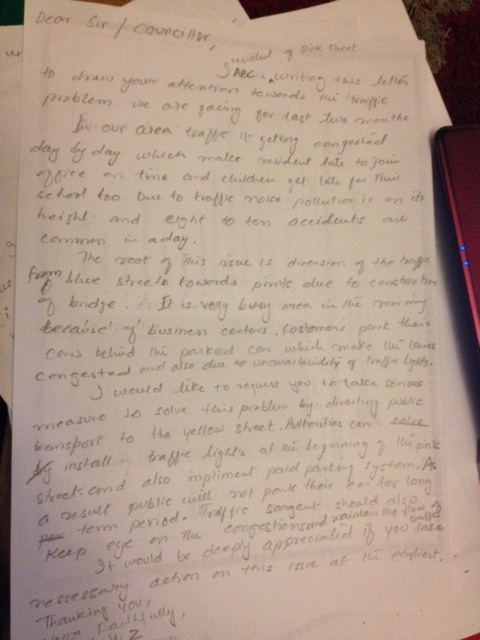 Dear Sir / Councillor,
resident of Pink street
I ABC am writing this letter
to draw your attention towards the traffic
problem we are facing for last two months
In our area traffic is getting congested
day by day which make resident late to join
office on time and children get late for their
school too. Due to traffic noise pollution is on its
height and eight to ten accidents are
common in a day.
The root of this issue is diversion of the traffic
from blue streets towards pink due to construction
of bridge. It is very busy area in the morning
because of business centers. Costomers park their
cars behind the parked car which make the lanes
congested and also due to unavailability of traffic lights.
I would like to request you to take serious
measure to solve this problem by diverting public
transport to the yellow street. Authorities can solve
by install traffic lights at the beginning of the pink
street and also impliment paid parking system. As
a result public will not park their car for long
term period. Traffic sargent should also
keep eye on the congestion and maintain the flow of
traffic
It would be deeply appreciated if you take
nessessary action on this issue at the earliest.
Thanking You,
Yours Faithfully,
Z